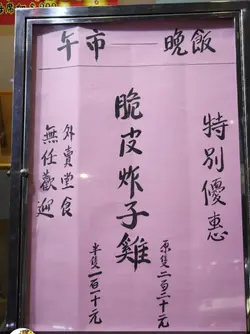 午市——晚飯
特別優惠
脆皮炸子雞
原隻二百二十元
半隻一百一十元
外賣堂食
無任歡迎